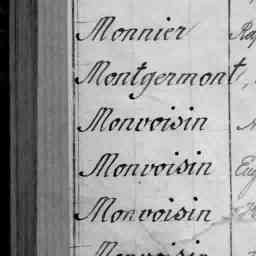 Monnier
Montgermont,
Monvoisin
Monvoisin
Monvoisin
Monvoisin